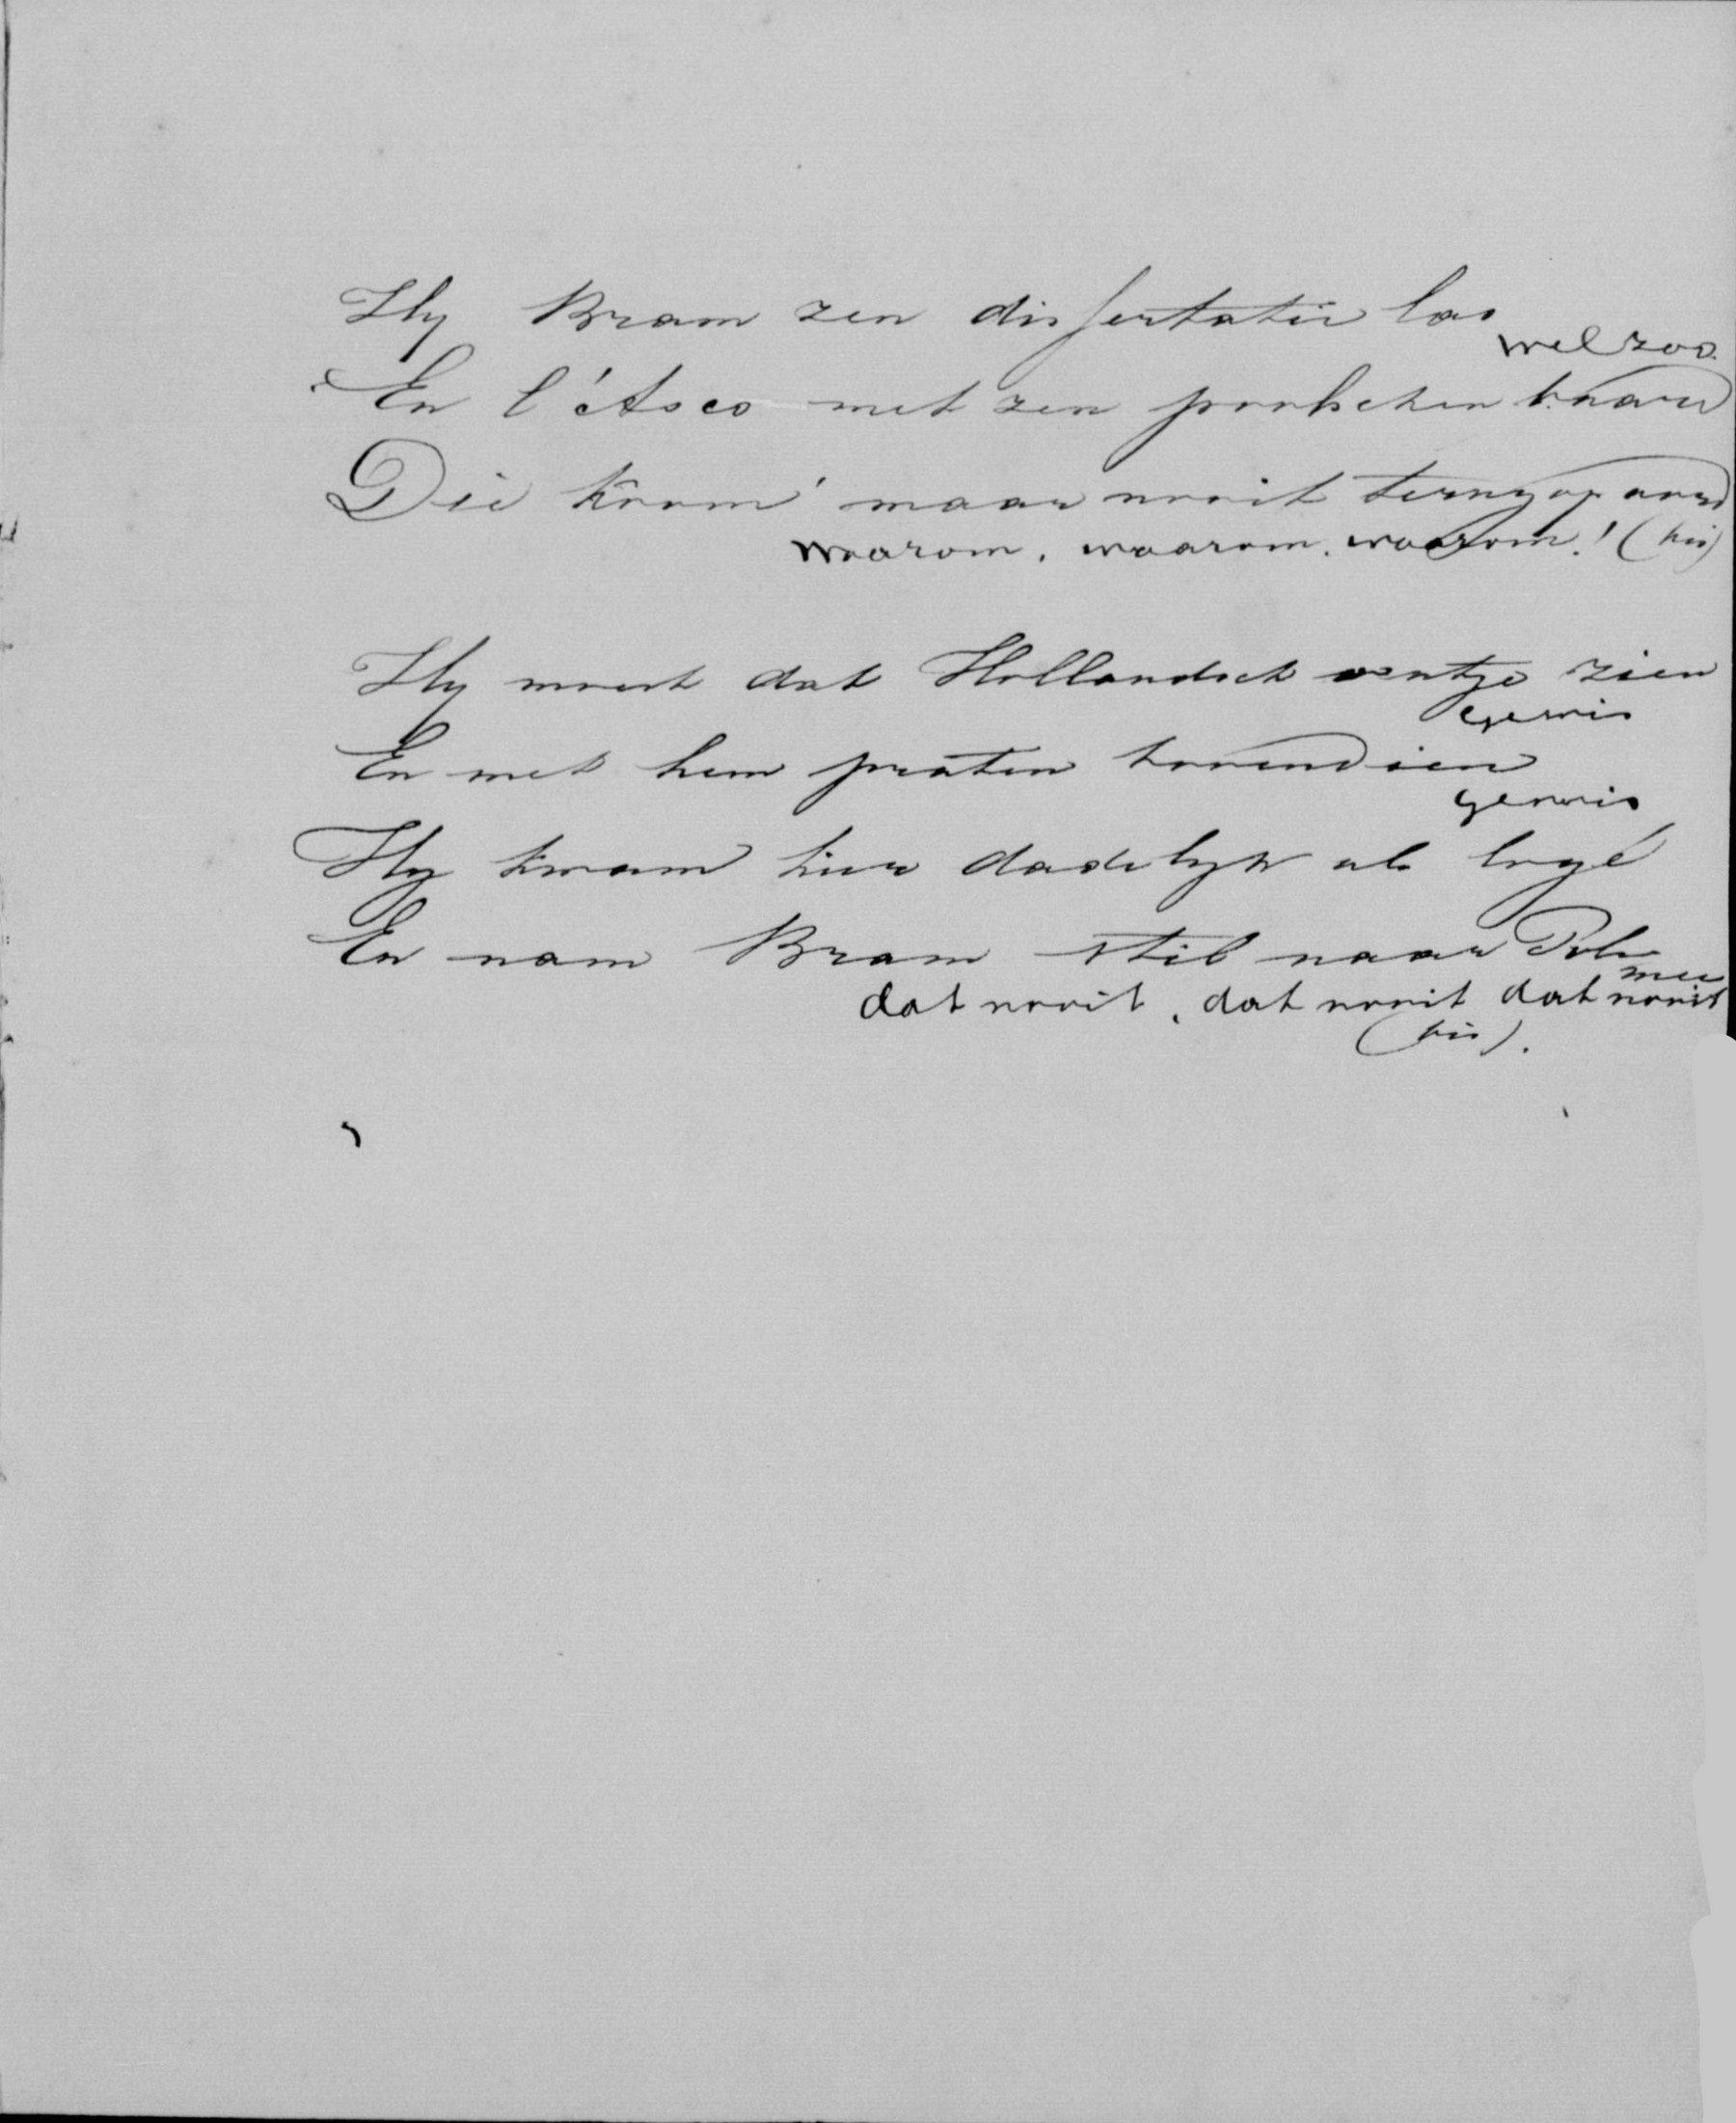 Hy Bram zen dissertatie las
welzoo.
En l'Asco met zen poolschen baard
Die kwam' maar nooit terug op aard
waarom, waarom, waarom! (bis)
Hy moest dat Hollandsch ventje zien
Gewis
En met hem praten bovendien
gewis
Hy kwam hier dadelyk als logé
En nam Bram stil naar Polen
mee
dat nooit, dat nooit dat nooit
(bis).